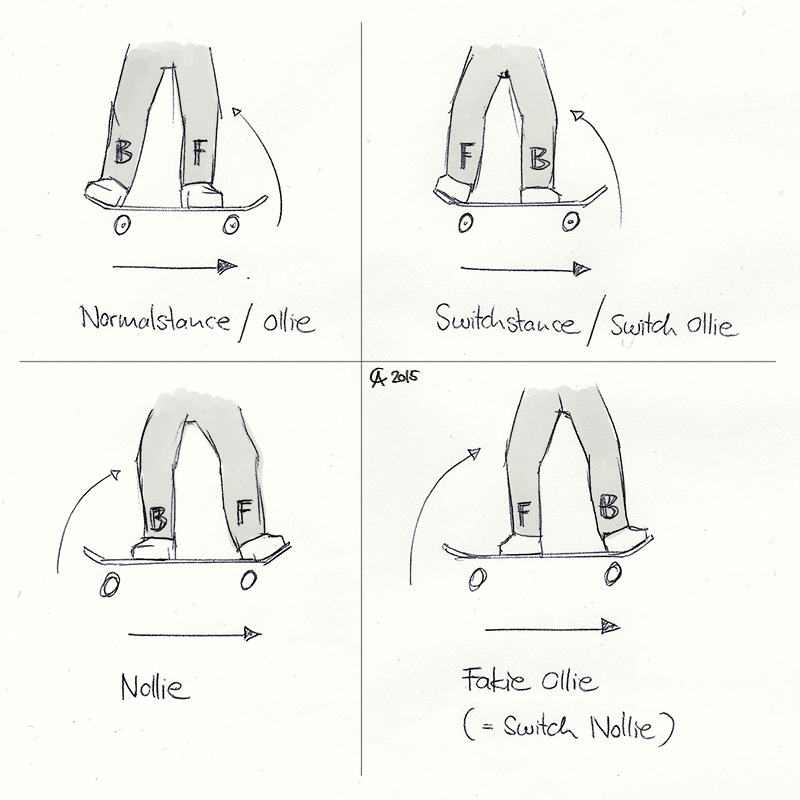 B F
Normalstance / Ollie
F B
Switchstance / Switch Ollie
CA 2015
B F
Nollie
F B
Fakie Ollie
(= Switch Nollie)